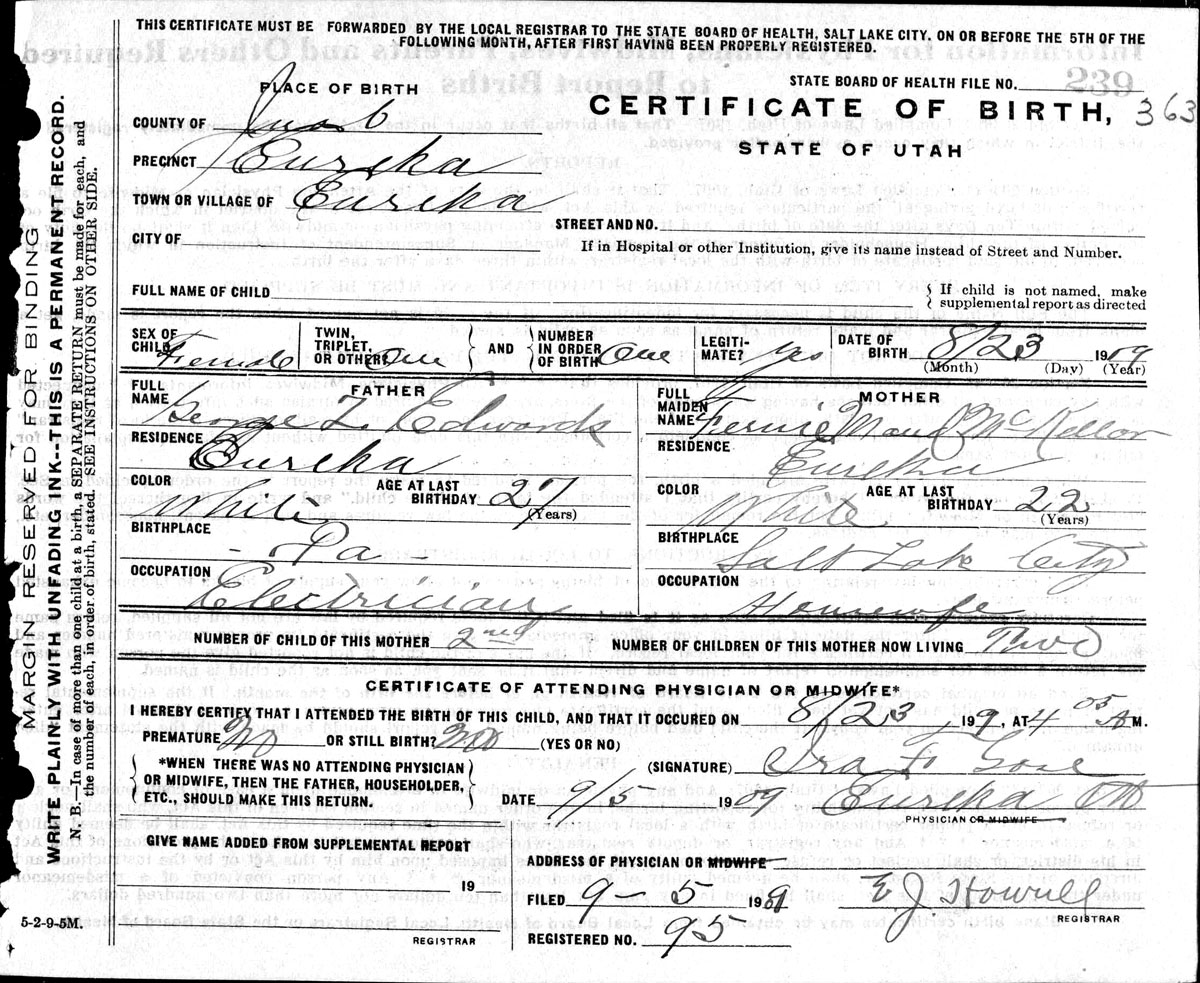 THIS CERTIFICATE MUST BE FORWARDED BY THE LOCAL REGISTRAR TO THE STATE BOARD OF HEALTH, SALT LAKE CITY, ON OR BEFORE THE 5TH OF THE
FOLLOWING MONTH, AFTER FIRST HAVING BEEN PROPERLY REGISTERED.
MARGIN RESERVED FOR BINDING
WRITE PLAINLY WITH UNFADING INK--THIS IS A PERMANENT RECORD.
N. B.—In case of more than one child at a birth, a SEPARATE RETURN must be made for each, and
the number of each, in order of birth, stated. SEE INSTRUCTIONS ON OTHER SIDE.
5-2-9-5M.
STATE BOARD OF HEALTH FILE NO.
239
PLACE OF BIRTH
CERTIFICATE OF BIRTH, 363
STATE OF UTAH
COUNTY OF Juab
PRECINCT Eureka
TOWN OR VILLAGE OF Eureka
STREET AND NO.
CITY OF
If in Hospital or other Institution, give its name instead of Street and Number.
FULL NAME OF CHILD
If child is not named, make
supplemental report as directed
SEX OF CHILD Female
TWIN, TRIPLET, OR OTHER One
AND
NUMBER IN ORDER OF BIRTH One
LEGITI-MATE? Yes
DATE OF BIRTH 8/23 1909
(Month) (Day) (Year)
FATHER
FULL NAME George L Edwards
RESIDENCE Eureka
COLOR White
AGE AT LAST BIRTHDAY 27
(Years)
BIRTHPLACE
- Pa -
OCCUPATION
Electrician
MOTHER
FULL MAIDEN NAME Fernie Maud McKellar
RESIDENCE
Eureka
COLOR White
AGE AT LAST BIRTHDAY 22
(Years)
BIRTHPLACE
Salt Lake City
OCCUPATION
Housewife
NUMBER OF CHILD OF THIS MOTHER 2nd
NUMBER OF CHILDREN OF THIS MOTHER NOW LIVING Two
CERTIFICATE OF ATTENDING PHYSICIAN OR MIDWIFE*
I HEREBY CERTIFY THAT I ATTENDED THE BIRTH OF THIS CHILD, AND THAT IT OCCURED ON 8/23, 199, AT 4 05 A M.
PREMATURE No OR STILL BIRTH? No (YES OR NO)
*WHEN THERE WAS NO ATTENDING PHYSICIAN
OR MIDWIFE, THEN THE FATHER, HOUSEHOLDER,
ETC., SHOULD MAKE THIS RETURN.
(SIGNATURE) Ira F
DATE 9/3 1909 Eureka
PHYSICIAN OR MIDWIFE
GIVE NAME ADDED FROM SUPPLEMENTAL REPORT
19
REGISTRAR
ADDRESS OF PHYSICIAN OR MIDWIFE
FILED 9-5 190 E J Howell
REGISTRAR
REGISTERED NO. 95